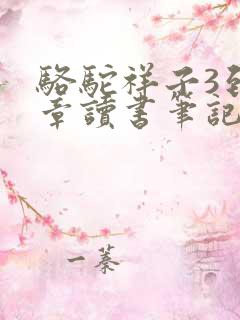 駱駝祥子3到
章讀書筆記
一蓁